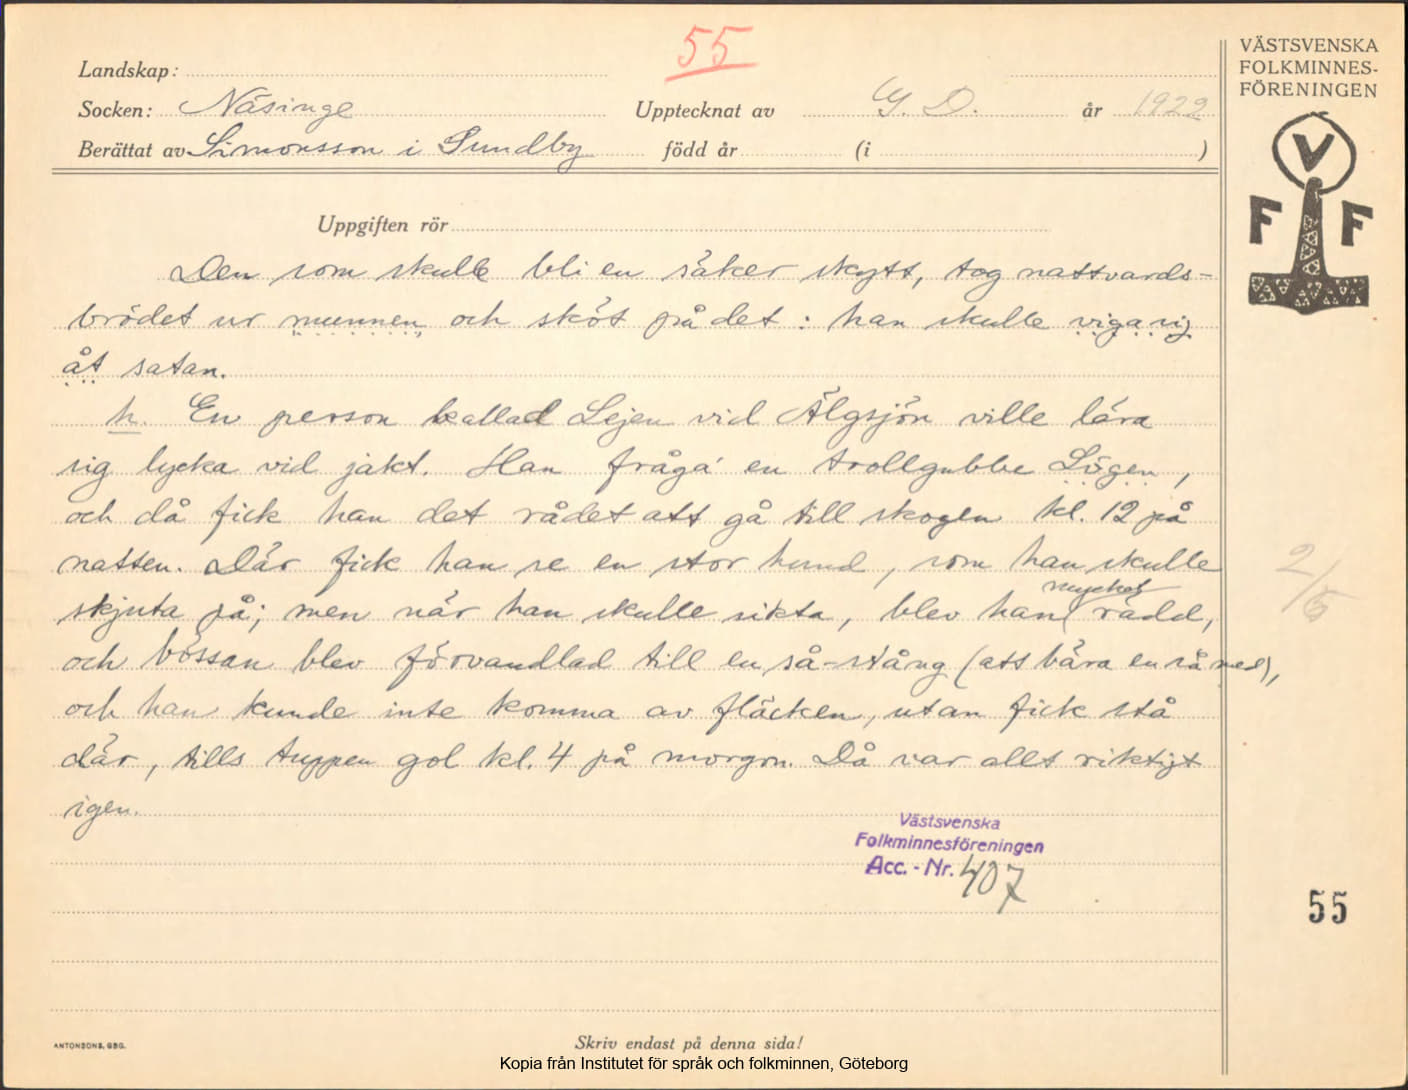 55
VÄSTSVENSKA
FOLKMINNES-
FÖRENINGEN
V
F F
Landskap:
Socken: Näsinge Upptecknat av G. D. år 1922
Berättat av Simonsson i Sundby född år (i )
Uppgiften rör
Den som skulle bli en säker skytt, tog nattvards-
brödet ur munnen och sköt på det: han skulle viga sig
åt satan.
h. En person kallad Lejen vid Älgsjön ville lära
sig lycka vid jakt. Han fråga' en trollgubbe Lögen,
och då fick han det rådet att gå till skogen kl. 12 på
natten. Där fick han se en stor hund, som han skulle
skjuta på; men när han skulle sikta, blev han mycket rädd,
och bössan blev förvandlad till en så-stång (att bära en så med),
och han kunde inte komma av fläcken, utan fick stå
där, tills tuppen gol kl. 4 på morgon. Då var allt riktigt
igen.
2/5
Västsvenska
Folkminnesföreningen
Acc. - Nr. 407
55
ANTONSONS, GBG.
Skriv endast på denna sida!
Kopia från Institutet för språk och folkminnen, Göteborg